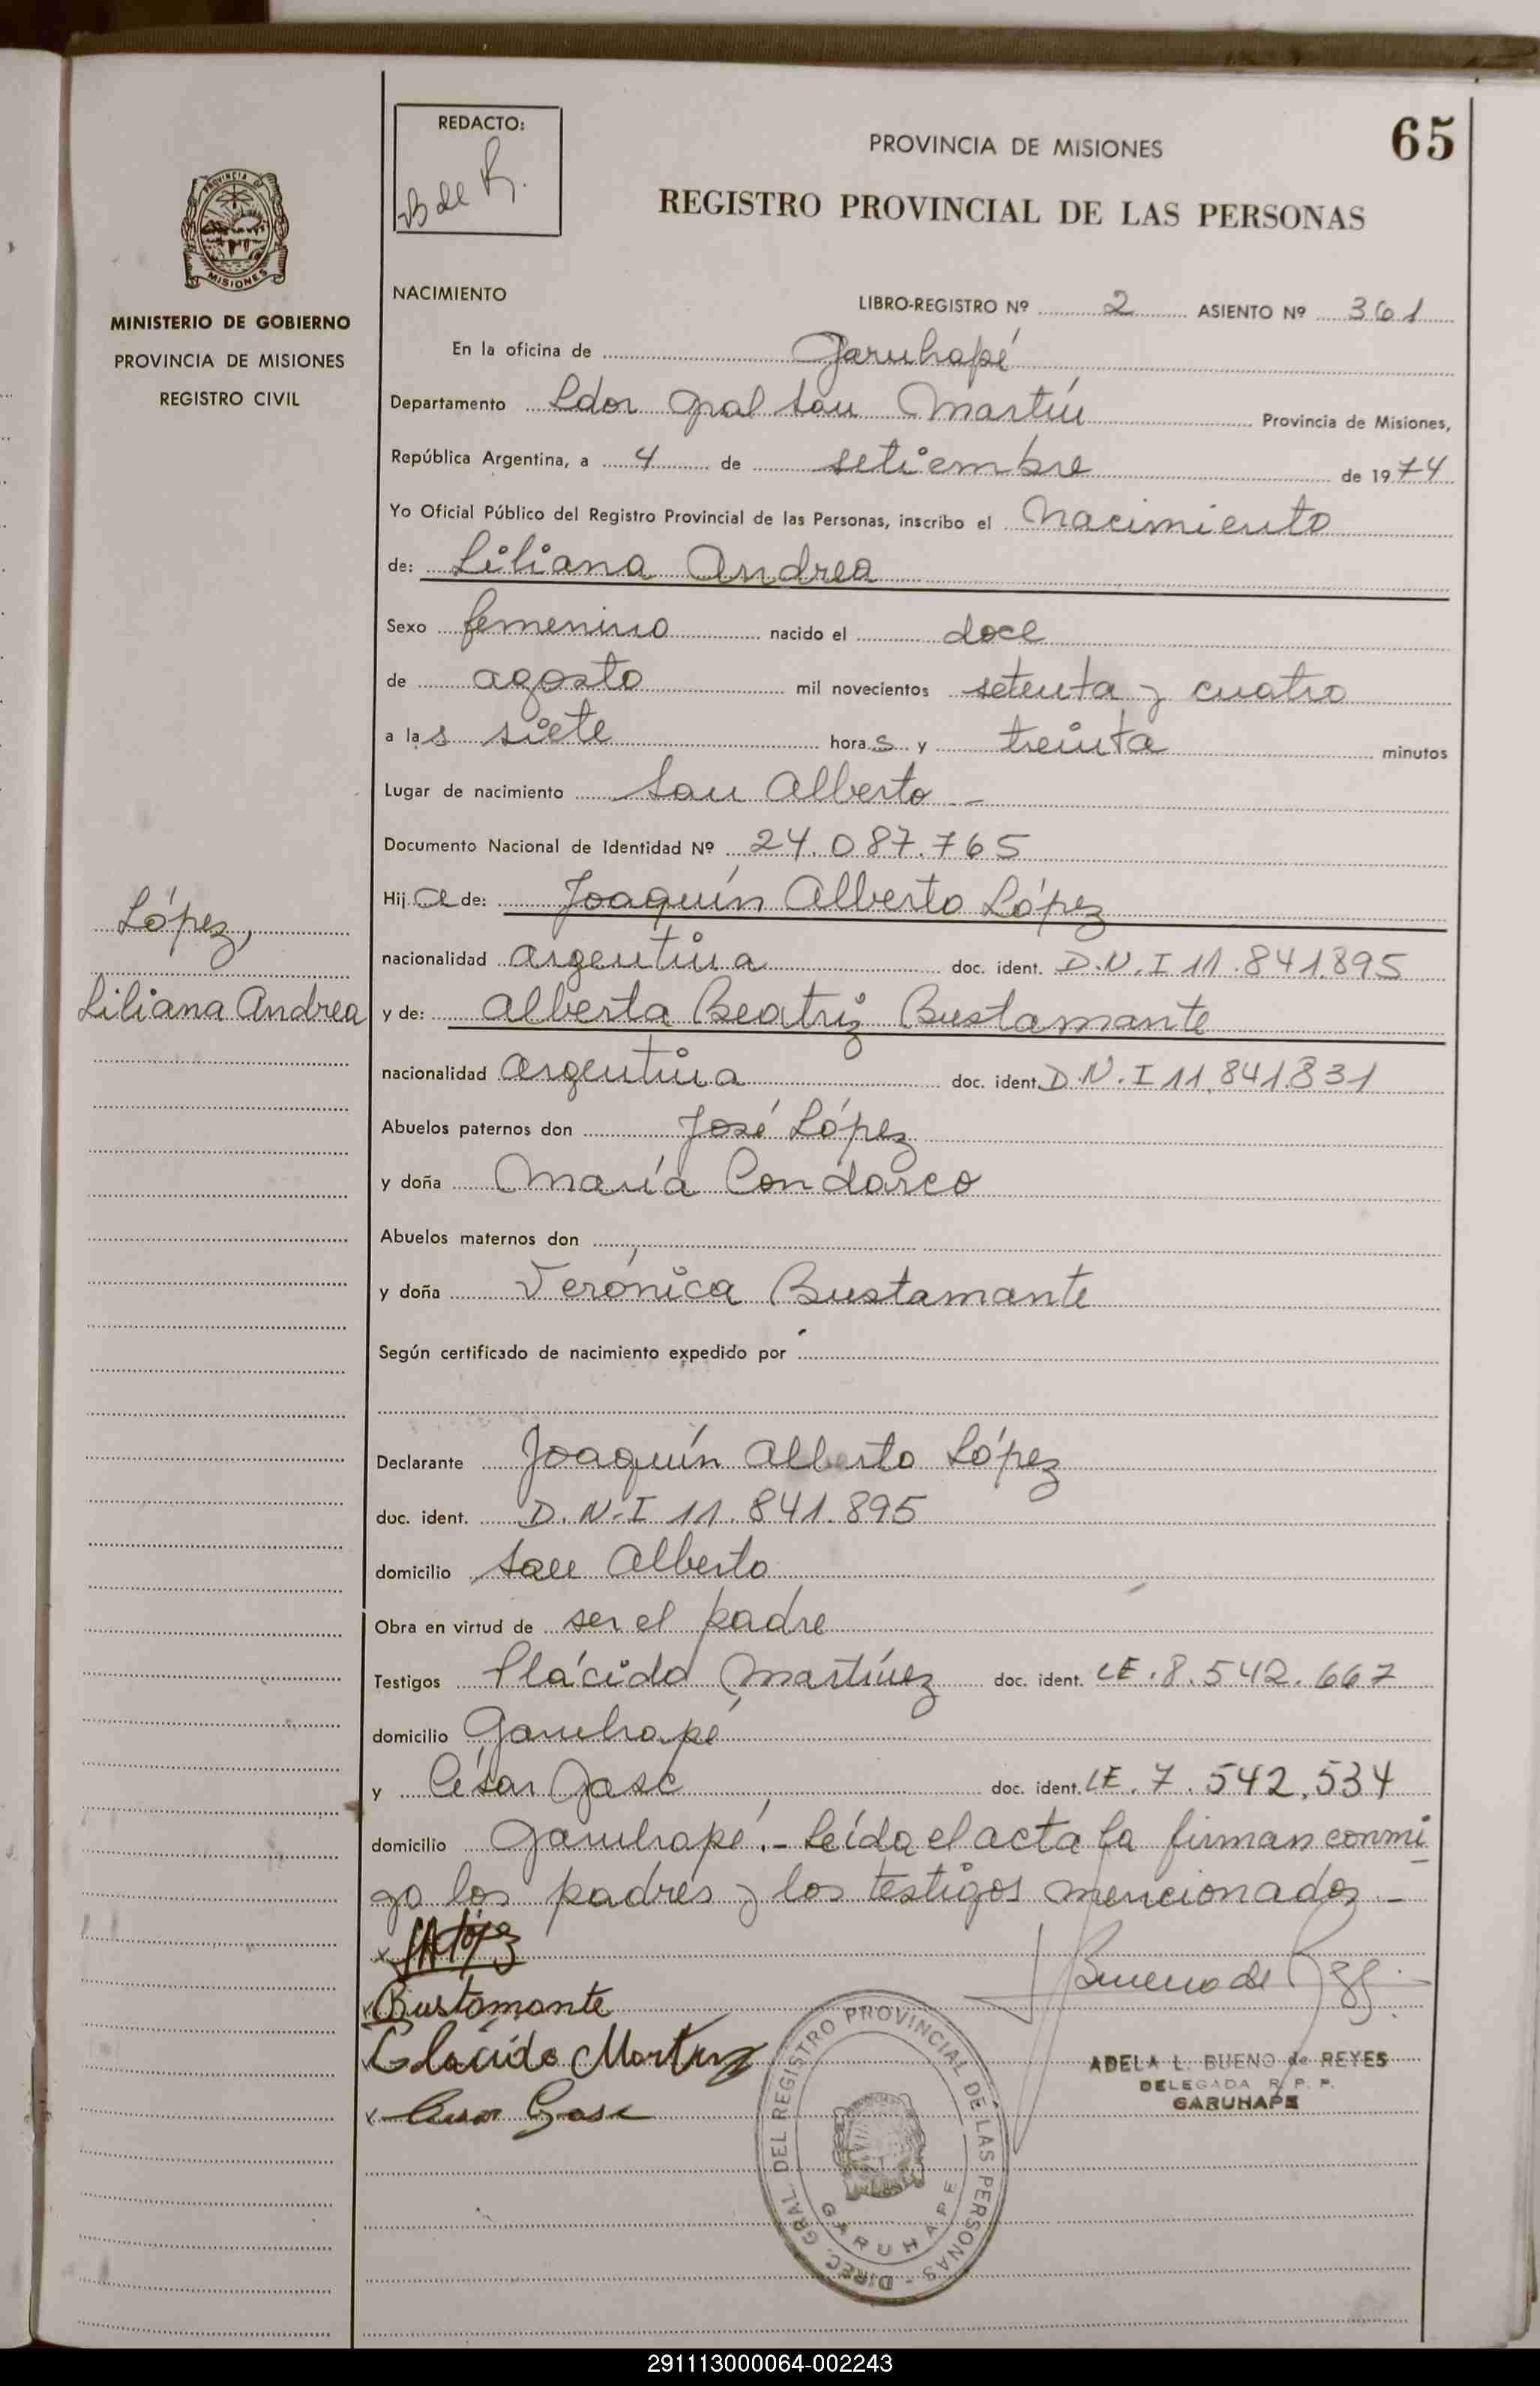 65
REDACTO:
B de R.
PROVINCIA DE MISIONES
REGISTRO PROVINCIAL DE LAS PERSONAS
PROVINCIA DE
MISIONES
MINISTERIO DE GOBIERNO
PROVINCIA DE MISIONES
REGISTRO CIVIL
NACIMIENTO
LIBRO-REGISTRO Nº 2 ASIENTO Nº 361
En la oficina de Garuhapé
Departamento Ldor Gral San Martín Provincia de Misiones,
República Argentina, a 4 de setiembre de 1974
Yo Oficial Público del Registro Provincial de las Personas, inscribo el Nacimiento
de: Liliana Andrea
Sexo femenino nacido el doce
de agosto mil novecientos setenta y cuatro
a las siete horas y treinta minutos
Lugar de nacimiento San Alberto -
Documento Nacional de Identidad Nº 24.087.765
Hija de: Joaquín Alberto López
López,
nacionalidad argentina doc. ident. D.N.I 11.841.895
Liliana Andrea
y de: Alberta Beatriz Bustamante
nacionalidad argentina doc. ident. D.N.I 11.841.831
Abuelos paternos don José López
y doña María Condarco
Abuelos maternos don
y doña Verónica Bustamante
Según certificado de nacimiento expedido por
Declarante Joaquín Alberto López
doc. ident. D.N.I 11.841.895
domicilio San Alberto
Obra en virtud de ser el padre
Testigos Plácido Martínez doc. ident. LE.8.542.667
domicilio Garuhapé
y César Gasc doc. ident. LE.7.542.534
domicilio Garuhapé.- Leída el acta la firman conmi
go los padres y los testigos mencionados -
x JALópez
Bueno de
x Bustamante
x Placido Martinez
ADELA L. BUENO de REYES
DELEGADA R. P. P.
GARUHAPE
x Cesar Gasc
DIREC. GRAL. DEL REGISTRO PROVINCIAL DE LAS PERSONAS -
GARUHAPE
291113000064-002243